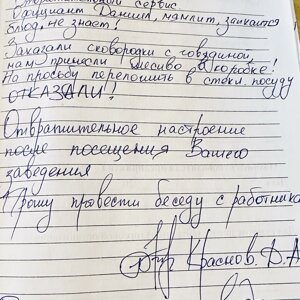 сервис
Официант Даниил, мямлит, заикается
блюд не знает!
Заказали сковородки с говядиной,
нам принесли месиво в коробке!
На просьбу переложить в стекл. посуду
ОТКАЗАЛИ!
Отвратительное настроение
после посещения Вашего
заведения
Прошу провести беседу с работника
Краснов. Д.А